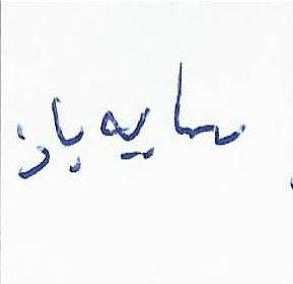 سایه باز